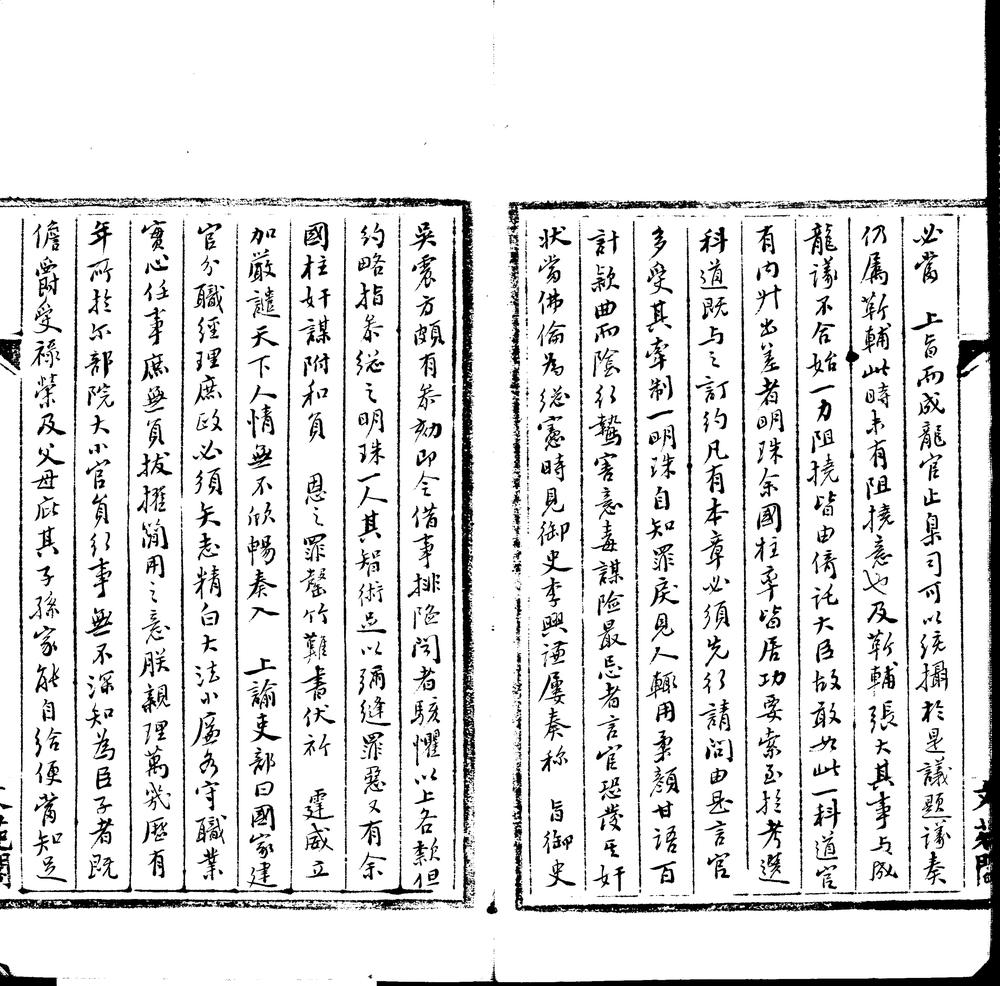 必當　上旨而成龍官止臬司可以統攝於是議題議奏
仍属靳輔此時未有阻撓意也及靳輔張大其事与成
龍議不合始一力阻撓皆由倚託大臣故敢如此一科道官
有内升出差者明珠余國柱率皆居功要索至於考選
科道既与之訂約凡有本章必須先行請問由是言官
多受其牽制一明珠自知罪戾見人輙用柔顔甘語百
計款曲而陰行鷙害意毒謀險最忌者言官恐發其奸
狀當佛倫為總憲時見御史李興謙屡奏称　旨御史
吴震方頗有条劾即令借事排陷闻者駭懼以上各款但
約略指叅總之明珠一人其智術足以彌縫罪惡又有余
國柱奸謀附和負　恩之罪罄竹難書伏祈　霆威立
加嚴譴天下人情無不欣暢奏入　上諭吏部曰國家建
官分職經理庶政必須矢志精白大法小廉各守職業
實心任事庶無負拔擢簡用之意朕親理萬幾歴有
年所於尔部院大小官員行事無不深知為臣子者既
儋爵受禄榮及父母庇其子孫家能自給便當知足
文苑閣